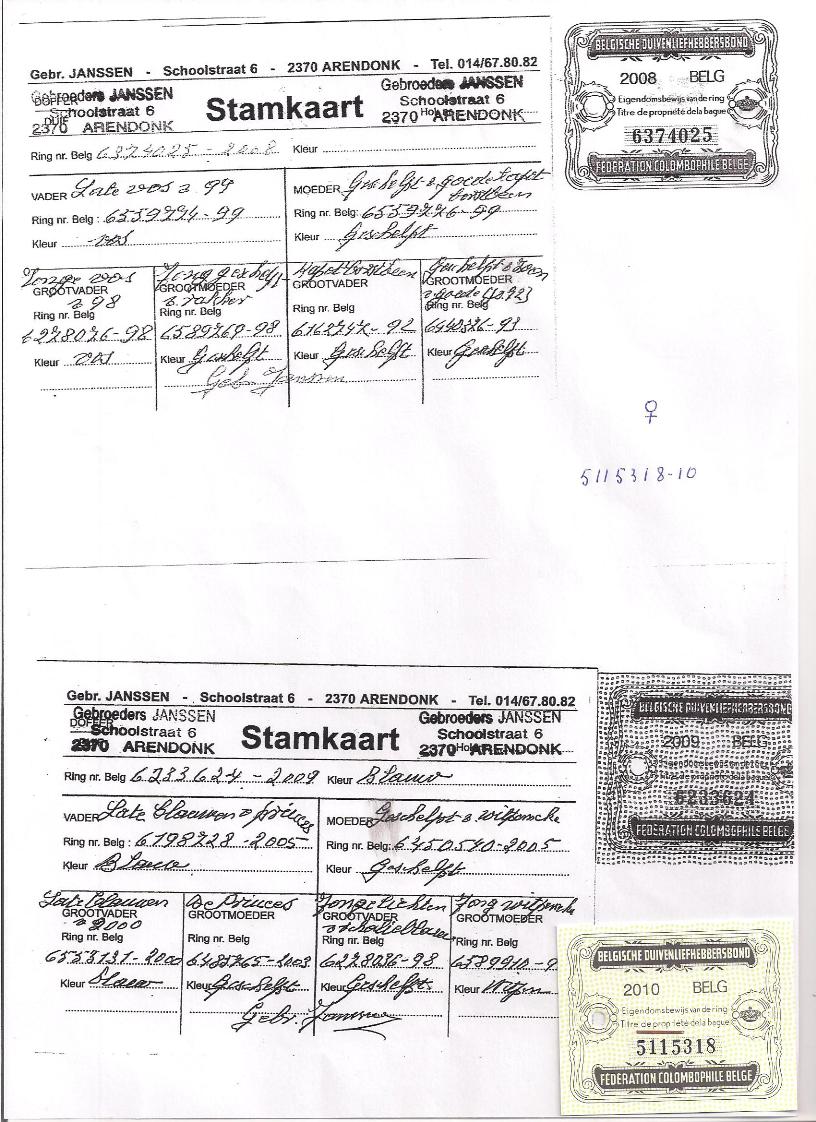 Gebr. JANSSEN - Schoolstraat 6 - 2370 ARENDONK - Tel. 014/67.80.82
Gebroeders JANSSEN
DOFFER
Schoolstraat 6
DUIF
2370 ARENDONK
Stamkaart
Gebroeders JANSSEN
Schoolstraat 6
2370 ARENDONK
Ring nr. Belg 6374025-2008 Kleur
VADER Late vos 99
Ring nr. Belg : 6359774-99
Kleur vos
MOEDER Geschelpt goede
Ring nr. Belg: 6559776-99
Kleur Geschelpt
Jonge vos
GROOTVADER
98
Ring nr. Belg
6278076-98
Kleur vos
Jong geschelpt
GROOTMOEDER
Ring nr. Belg
6589769-98
Kleur Geschelpt
GROOTVADER
Ring nr. Belg
6162747-92
Kleur Geschelpt
Geschelpt
GROOTMOEDER
goede
Ring nr. Belg
6440876-93
Kleur Geschelpt
Gebr. Janssen
BELGISCHE DUIVENLIEFHEBBERSBOND
2008 BELG
Eigendomsbewijs van de ring
Titre de propriété de la bague
6374025
FEDERATION COLOMBOPHILE BELGE
♀
5115318-10
Gebr. JANSSEN - Schoolstraat 6 - 2370 ARENDONK - Tel. 014/67.80.82
Gebroeders JANSSEN
DOFFER
Schoolstraat 6
2370 ARENDONK
Stamkaart
Gebroeders JANSSEN
Schoolstraat 6
2370 ARENDONK
Ring nr. Belg 6233624-2009 Kleur Blauw
VADER Late Blauwen princes
Ring nr. Belg : 6198728-2005
Kleur Blauw
MOEDER Geschelpt witpenneke
Ring nr. Belg: 6450570-2005
Kleur Geschelpt
Late Blauwen
GROOTVADER
2000
Ring nr. Belg
6553131-2000
Kleur Blauw
De Princes
GROOTMOEDER
Ring nr. Belg
6485765-2003
Kleur Geschelpt
Jonge Lichten
GROOTVADER
Ring nr. Belg
6278086-98
Kleur Geschelpt
Jong witpenneke
GROOTMOEDER
Ring nr. Belg
6589910-9
Kleur Witpen
Gebr. Janssen
BELGISCHE DUIVENLIEFHEBBERSBOND
2009 BELG
Eigendomsbewijs van de ring
Titre de propriété de la bague
6233624
FEDERATION COLOMBOPHILE BELGE
BELGISCHE DUIVENLIEFHEBBERSBOND
2010 BELG
Eigendomsbewijs van de ring
Titre de propriété de la bague
5115318
FEDERATION COLOMBOPHILE BELGE